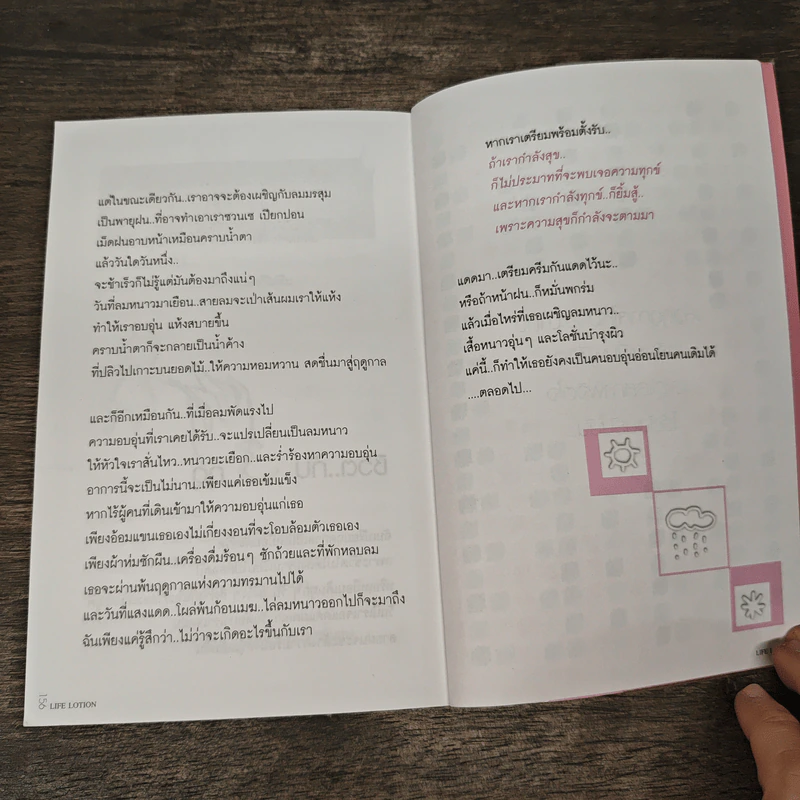 แต่ในขณะเดียวกัน..เราอาจจะต้องเผชิญกับลมมรสุม
เป็นพายุฝน..ที่อาจทำเอาเราซวนเซ เปียกปอน
เม็ดฝนอาบหน้าเหมือนคราบน้ำตา
แล้ววันใดวันหนึ่ง..
จะช้าเร็วก็ไม่รู้แต่มันต้องมาถึงแน่ๆ
วันที่ลมหนาวมาเยือน..สายลมจะเป่าเส้นผมเราให้แห้ง
ทำให้เราอบอุ่น แห้งสบายขึ้น
คราบน้ำตาก็จะกลายเป็นน้ำค้าง
ที่ปลิวไปเกาะบนยอดไม้..ให้ความหอมหวาน สดชื่นมาสู่ฤดูกาล
และก็อีกเหมือนกัน..ที่เมื่อลมพัดแรงไป
ความอบอุ่นที่เราเคยได้รับ..จะแปรเปลี่ยนเป็นลมหนาว
ให้หัวใจเราสั่นไหว..หนาวยะเยือก..และร่ำร้องหาความอบอุ่น
อาการนี้จะเป็นไม่นาน..เพียงแค่เธอเข้มแข็ง
หากไร้ผู้คนที่เดินเข้ามาให้ความอบอุ่นแก่เธอ
เพียงอ้อมแขนเธอเองไม่เกี่ยงงอนที่จะโอบล้อมตัวเธอเอง
เพียงผ้าห่มซักผืน..เครื่องดื่มร้อนๆ ซักถ้วยและที่พักหลบลม
เธอจะผ่านพ้นฤดูกาลแห่งความทรมานไปได้
และวันที่แสงแดด..โผล่พ้นก้อนเมฆ..ไล่ลมหนาวออกไปก็จะมาถึง
ฉันเพียงแค่รู้สึกว่า..ไม่ว่าจะเกิดอะไรขึ้นกับเรา
156 LIFE LOTION
หากเราเตรียมพร้อมตั้งรับ..
ถ้าเรากำลังสุข..
ก็ไม่ประมาทที่จะพบเจอความทุกข์
และหากเรากำลังทุกข์..ก็ยิ้มสู้..
เพราะความสุขก็กำลังจะตามมา
แดดมา..เตรียมครีมกันแดดไว้นะ..
หรือถ้าหน้าฝน..ก็หมั่นพกร่ม
แล้วเมื่อไหร่ที่เธอเผชิญลมหนาว..
เสื้อหนาวอุ่นๆ และโลชั่นบำรุงผิว
แค่นี้..ก็ทำให้เธอยังคงเป็นคนอบอุ่นอ่อนโยนคนเดิมได้
....ตลอดไป...